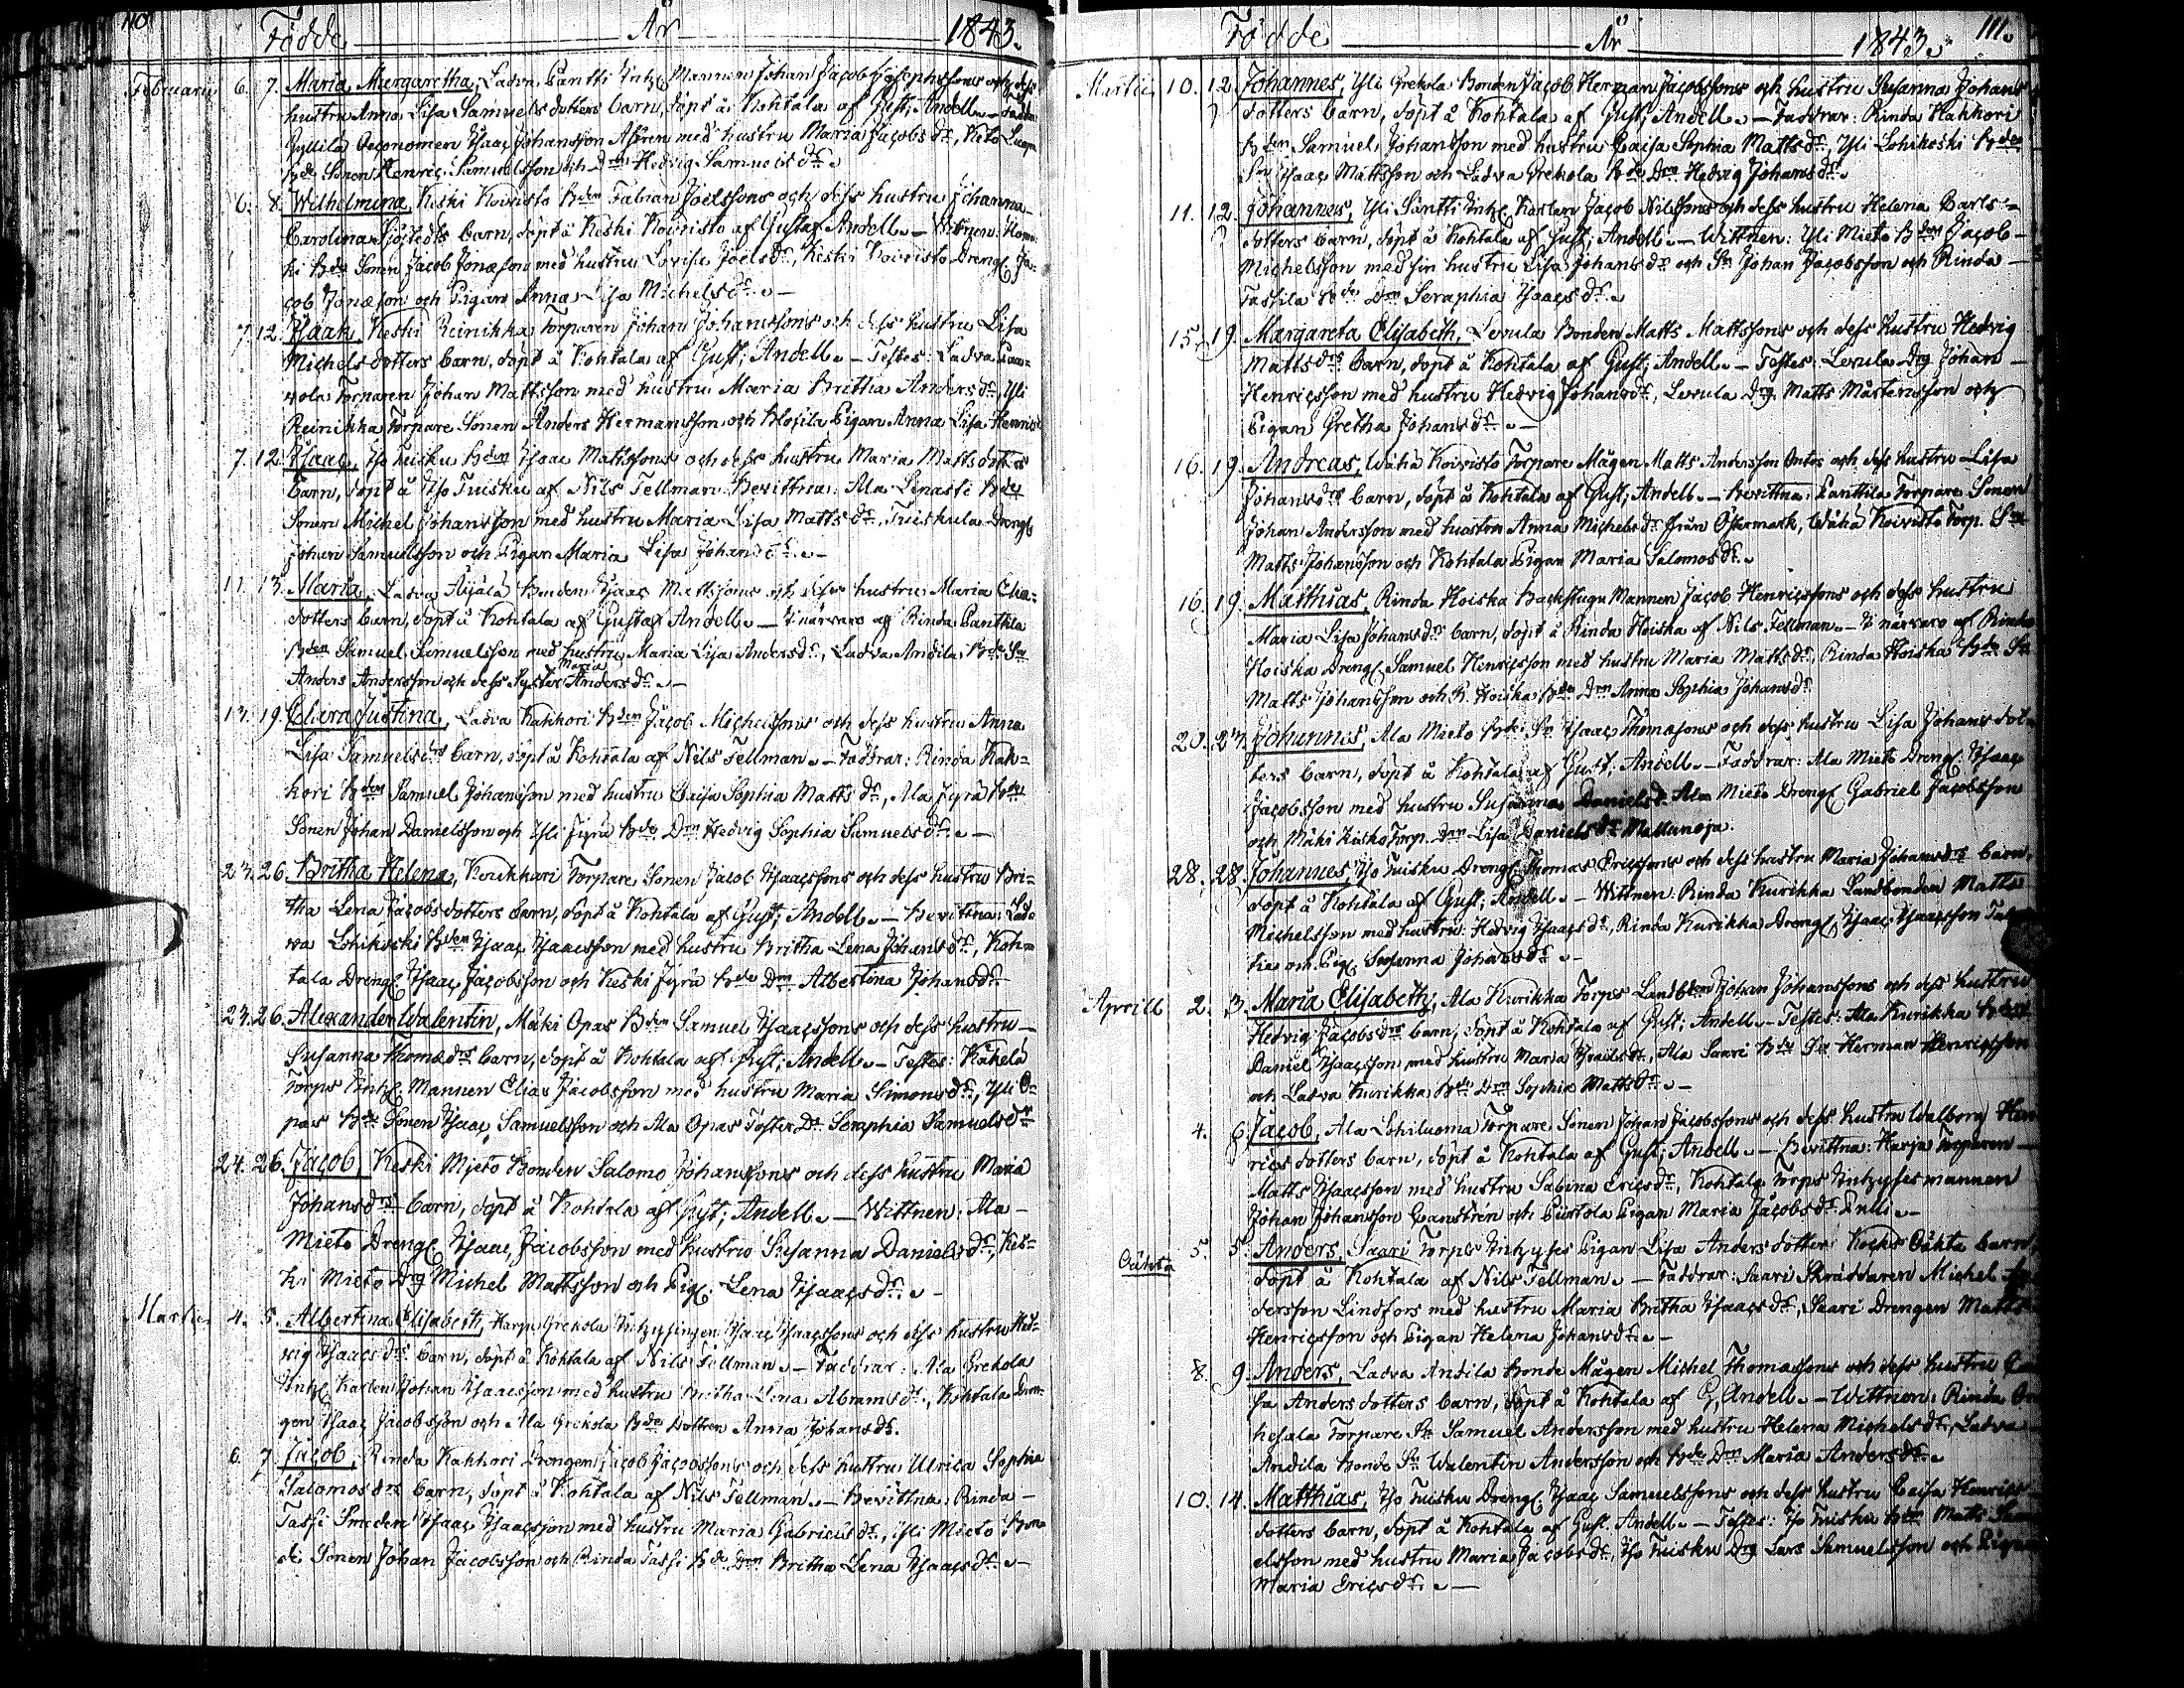 110
Födde År 1843.
Februarii 6. 7. Maria Margaretha, Ladva Pantti Inh: Mannen Johan Jacob Josephssons och dess
hustru Anna Lisa Samuels dotters barn, döpt å Kohtala af Gust; Andell. — Faddr:
Gyllilä Oeconomen Isaac Johansson Ahren med hustru Maria Jacobs dr,
Bde Sonen Henric Samuelsson och Drn Hedvig Samuels dr.
6. 8. Wilhelmina, Keski Koivisto Bden Fabian Joelssons och dess hustru Johanna
Carolina Sjöstedts barn, döpt å Keski Koivisto af Gustaf Andell. — Wittnen:
ki Bde Sonen Jacob Jonæson med hustru Lovisa Joels dr, Keski Koivisto Dreng: Ja-
cob Jonæson och Pigan Anna Lisa Michels dr. —
7. 12. Isaak, Keski Reinikka Torparen Johan Johanssons och dess hustru Lisa
Michels dotters barn, döpt å Kohtala af Gust; Andell. — Testes: Ladva Paa-
vola Torparen Johan Mattsson med hustru Maria Britha Anders dr, Yli
Reinikka Torpare Sonen Anders Hermansson och Plosila Pigan Anna Lisa Henrics
7. 12. Isaac, Iso Tuisku Bden Isaac Mattssons och dess hustru Maria Matts dotters
barn, döpt å Iso Tuisku af Nils Tellman. Bevittna: Ala Lipasti Bde
Sonen Michel Johansson med hustru Maria Lisa Matts dr, Tuiskula Dreng:
Johan Samuelsson och Pigan Maria Lisa Johans dr. —
11. 13. Maria, Ladva Äijälä Bonden Isaac Mattssons och dess hustru Maria Elia-
dotters barn, döpt å Kohtala af Gustaf Andell. — I närvaro af Rinda Panttila
Bden Samuel Samuelsson med hustru Maria Lisa Anders dr, Ladva Andila Bde Sn
Anders Andersson och dess Syster Maria Anders dr. —
17. 19. Clara Justina, Ladva Kakkori Bden Jacob Michelssons och dess hustru Anna
Lisa Samuels drs barn, döpt å Kohtala af Nils Tellman. — Faddrar: Rinda Kak-
kori Bden Samuel Johansson med hustru Caisa Sophia Matts dr, Ala Jyrä Bde
Sonen Johan Danielsson och Yli Jyrä Bde Drn Hedvig Sophia Samuels dr. —
23. 26. Britha Helena, Koukkari Torpare Sonen Jacob Isaacssons och dess hustru Bri-
tha Lena Jacobs dotters barn, döpt å Kohtala af Gust; Andell. — Bevittna: Lad-
va Lohikoski Bden Isaac Isaacsson med hustru Britha Lena Johans dr, Koh-
tala Dreng: Isaac Jacobsson och Keski Jyrä Bde Drn Albertina Johans dr.
23. 26. Alexander Walentin, Mäki Opas Bden Samuel Isaacssons och dess hustru
Susanna Thomæ drs barn, döpt å Kohtala af Gust; Andell. — Testes: Kähelä
Torps Inh: Mannen Elias Jacobsson med hustru Maria Simons dr, Yli O-
pas Bde Sonen Isaac Samuelsson och Ala Opas Foster Dr Seraphia Samuels dr
24. 26. Jacob, Keski Mieto Bonden Salomo Johanssons och dess hustru Maria
Johans drs barn, döpt å Kohtala af Gust; Andell. — Wittnen: Ala
Mieto Dreng: Isaac Jacobsson med hustru Susanna Daniels dr, Kes-
ki Mieto Drg Michel Mattsson och Pig: Lena Isaacs dr. —
Martii 4. 5. Albertina Elisabeth, Harju Grekola Inhysingen Isaac Isaacssons och dess hustru Hed-
vig Isaacs drs barn, döpt å Kohtala af Nils Tellman. — Faddrar: Ala Grekola
Inh: Karlen Johan Isaacsson med hustru Britha Lena Abrams dr, Kohtala Dren-
gen Isaac Jacobsson och Ala Grekola Bde Dottren Anna Johans dr.
6. 7. Jacob, Rinda Kakkori Drengen Jacob Jacobssons och dess hustru Ulrica Sophia
Salomos drs barn, döpt å Kohtala af Nils Tellman. — Bevittna: Rinda
Tassi Smeden Isaac Isaacsson med hustru Maria Gabriels dr, Yli Mieto Bon-
de Sonen Johan Jacobsson och Rinda Tassi Bde Drn Britha Lena Isaacs dr. —
Födde År 1843. 111.
Martii 10. 12. Johannes, Yli Grekola Bonden Jacob Herman Jacobssons och hustru Susanna Johans
dotters barn, döpt å Kohtala af Gust; Andell. — Faddrar: Rinda Kakkori
Bden Samuel Johansson med hustru Caisa Sophia Matts dr, Yli Lohikoski Bde
Sn Isaac Mattsson och Ladva Grekola Bde Drn Hedvig Johans dr.
11. 12. Johannes, Yli Säntti Inh: Karlen Jacob Nilssons och dess hustru Helena Carls-
dotters barn, döpt å Kohtala af Gust; Andell. — Wittnen: Yli Mieto Bden Jacob
Michelsson med sin hustru Lisa Johans dr och Sn Johan Jacobsson och Rinda
Tassila Bde Drn Seraphia Isaacs dr.
15. 19. Margareta Elisabeth, Levula Bonden Matts Mattssons och dess hustru Hedvig
Matts drs barn, döpt å Kohtala af Gust; Andell. — Testes: Levula Drg Johan
Henricsson med hustru Hedvig Johans dr, Levula Drg Matts Mårtensson och
Pigan Gretha Johans dr. —
16. 19. Andreas, Wähä Koivisto Torpare Mågen Matts Andersson Ontos och dess hustru Lisa
Johans drs barn, döpt å Kohtala af Gust; Andell. — Bevittna: Panttila Torpare Sonen
Johan Andersson med hustru Anna Michels dr från Östermark, Wähä Koivisto Torp. Sn
Matts Johansson och Kohtala Pigan Maria Salomos dr.
16. 19. Matthias, Rinda Hoiska Backstugu Mannen Jacob Henricssons och dess hustru
Maria Lisa Johans drs barn, döpt å Rinda Hoiska af Nils Tellman. — I närvaro af Rinda
Hoiska Dreng: Samuel Henricsson med hustru Maria Matts dr, Rinda Hoiska Bde Sn
Matts Johansson och R. Hoiska Bde Drn Anna Sophia Johans dr
20. 23. Johannes, Ala Mieto Bde Sn Isaac Thomæsons och dess hustru Lisa Johans dot-
ters barn, döpt å Kohtala af Gust; Andell. — Faddrar: Ala Mieto Dreng: Isaac
Jacobsson med hustru Susanna Daniels dr Ala Mieto Dreng: Gabriel Jacobsson
och Mäki Kisko Torp. Drn Lisa Daniels dr Mallunoja.
28. 28. Johannes, Iso Tuisku Dreng: Thomas Ericssons och dess hustru Maria Johans drs barn,
döpt å Kohtala af Gust; Andell. — Wittnen: Rinda Kurikka Landbonden Matts
Michelsson med hustru Hedvig Isaacs dr, Rinda Kurikka Dreng: Isaac Isaacsson
och Pig: Susanna Johans dr. —
Aprill 2. 3. Maria Elisabeth, Ala Kurikka Torps Landbden Johan Johanssons och dess hustru
Hedvig Jacobs drs barn, döpt å Kohtala af Gust; Andell. — Testes: Ala Kurikka Bden
Daniel Isaacsson med hustru Maria Israels dr, Ala Saari Bde Sn Herman Henricsson
och Ladva Kurikka Bde Drn Sophia Matts dr. —
4. 6. Jacob, Ala Lohiluoma Torpare Sonen Johan Jacobssons och dess hustru Walborg Hen-
rics dotters barn, döpt å Kohtala af Gust; Andell. — Bevittna: Harja Torparen
Matts Isaacsson med hustru Sabina Erics dr, Kohtala Torps Inhysesmannen
Johan Johansson Ganström och Pürtola Pigan Maria Jacobs dr Pulli. —
Oäkta 5. 5. Anders, Saari Torps Inhyses Pigan Lisa Anders dotter Kocks Oäkta barn,
döpt å Kohtala af Nils Tellman. — Faddrar: Saari Skräddaren Michel An-
dersson Lindfors med hustru Maria Britha Isaacs dr, Saari Drengen Matts
Henricsson och Pigan Helena Johans dr. —
8. 9. Anders, Ladva Andila Bonde Mågen Michel Thomassons och dess hustru
sa Anders dotters barn, döpt å Kohtala af G. Andell. — Wittnen: Rinda
Torpare Sn Samuel Andersson med hustru Helena Michels dr, Ladva
Andila Bonde Sn Walentin Andersson och Bde Drn Maria Anders dr.
10. 14. Matthias, Iso Tuisku Dreng: Isaac Samuelssons och dess hustru Caisa Henrics
dotters barn, döpt å Kohtala af Gust. Andell. — Testes: Iso Tuisku Bden Matts Sam-
elsson med hustru Maria Jacobs dr, Iso Tuisku Drg Lars Samuelsson och Pigan
Maria Erics dr. —